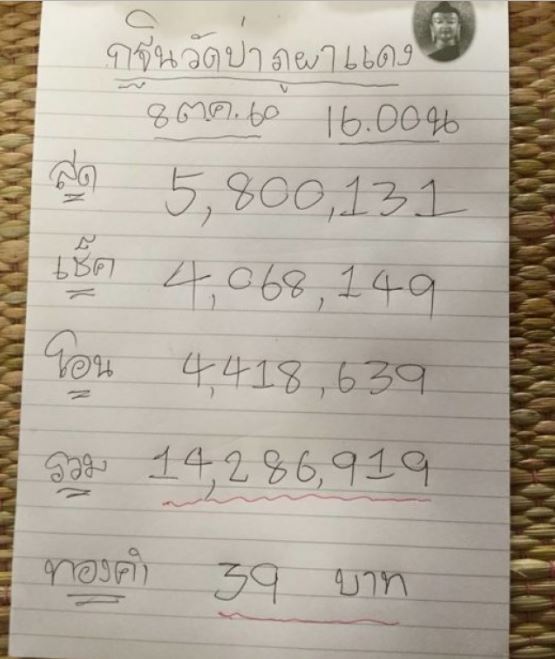 กฐินวัดป่าภูผาแดง
8 ต.ค. 60 16.00 น
สด 5,800,131
เช็ค 4,068,149
โอน 4,418,639
รวม 14,286,919
ทองคำ 39 บาท